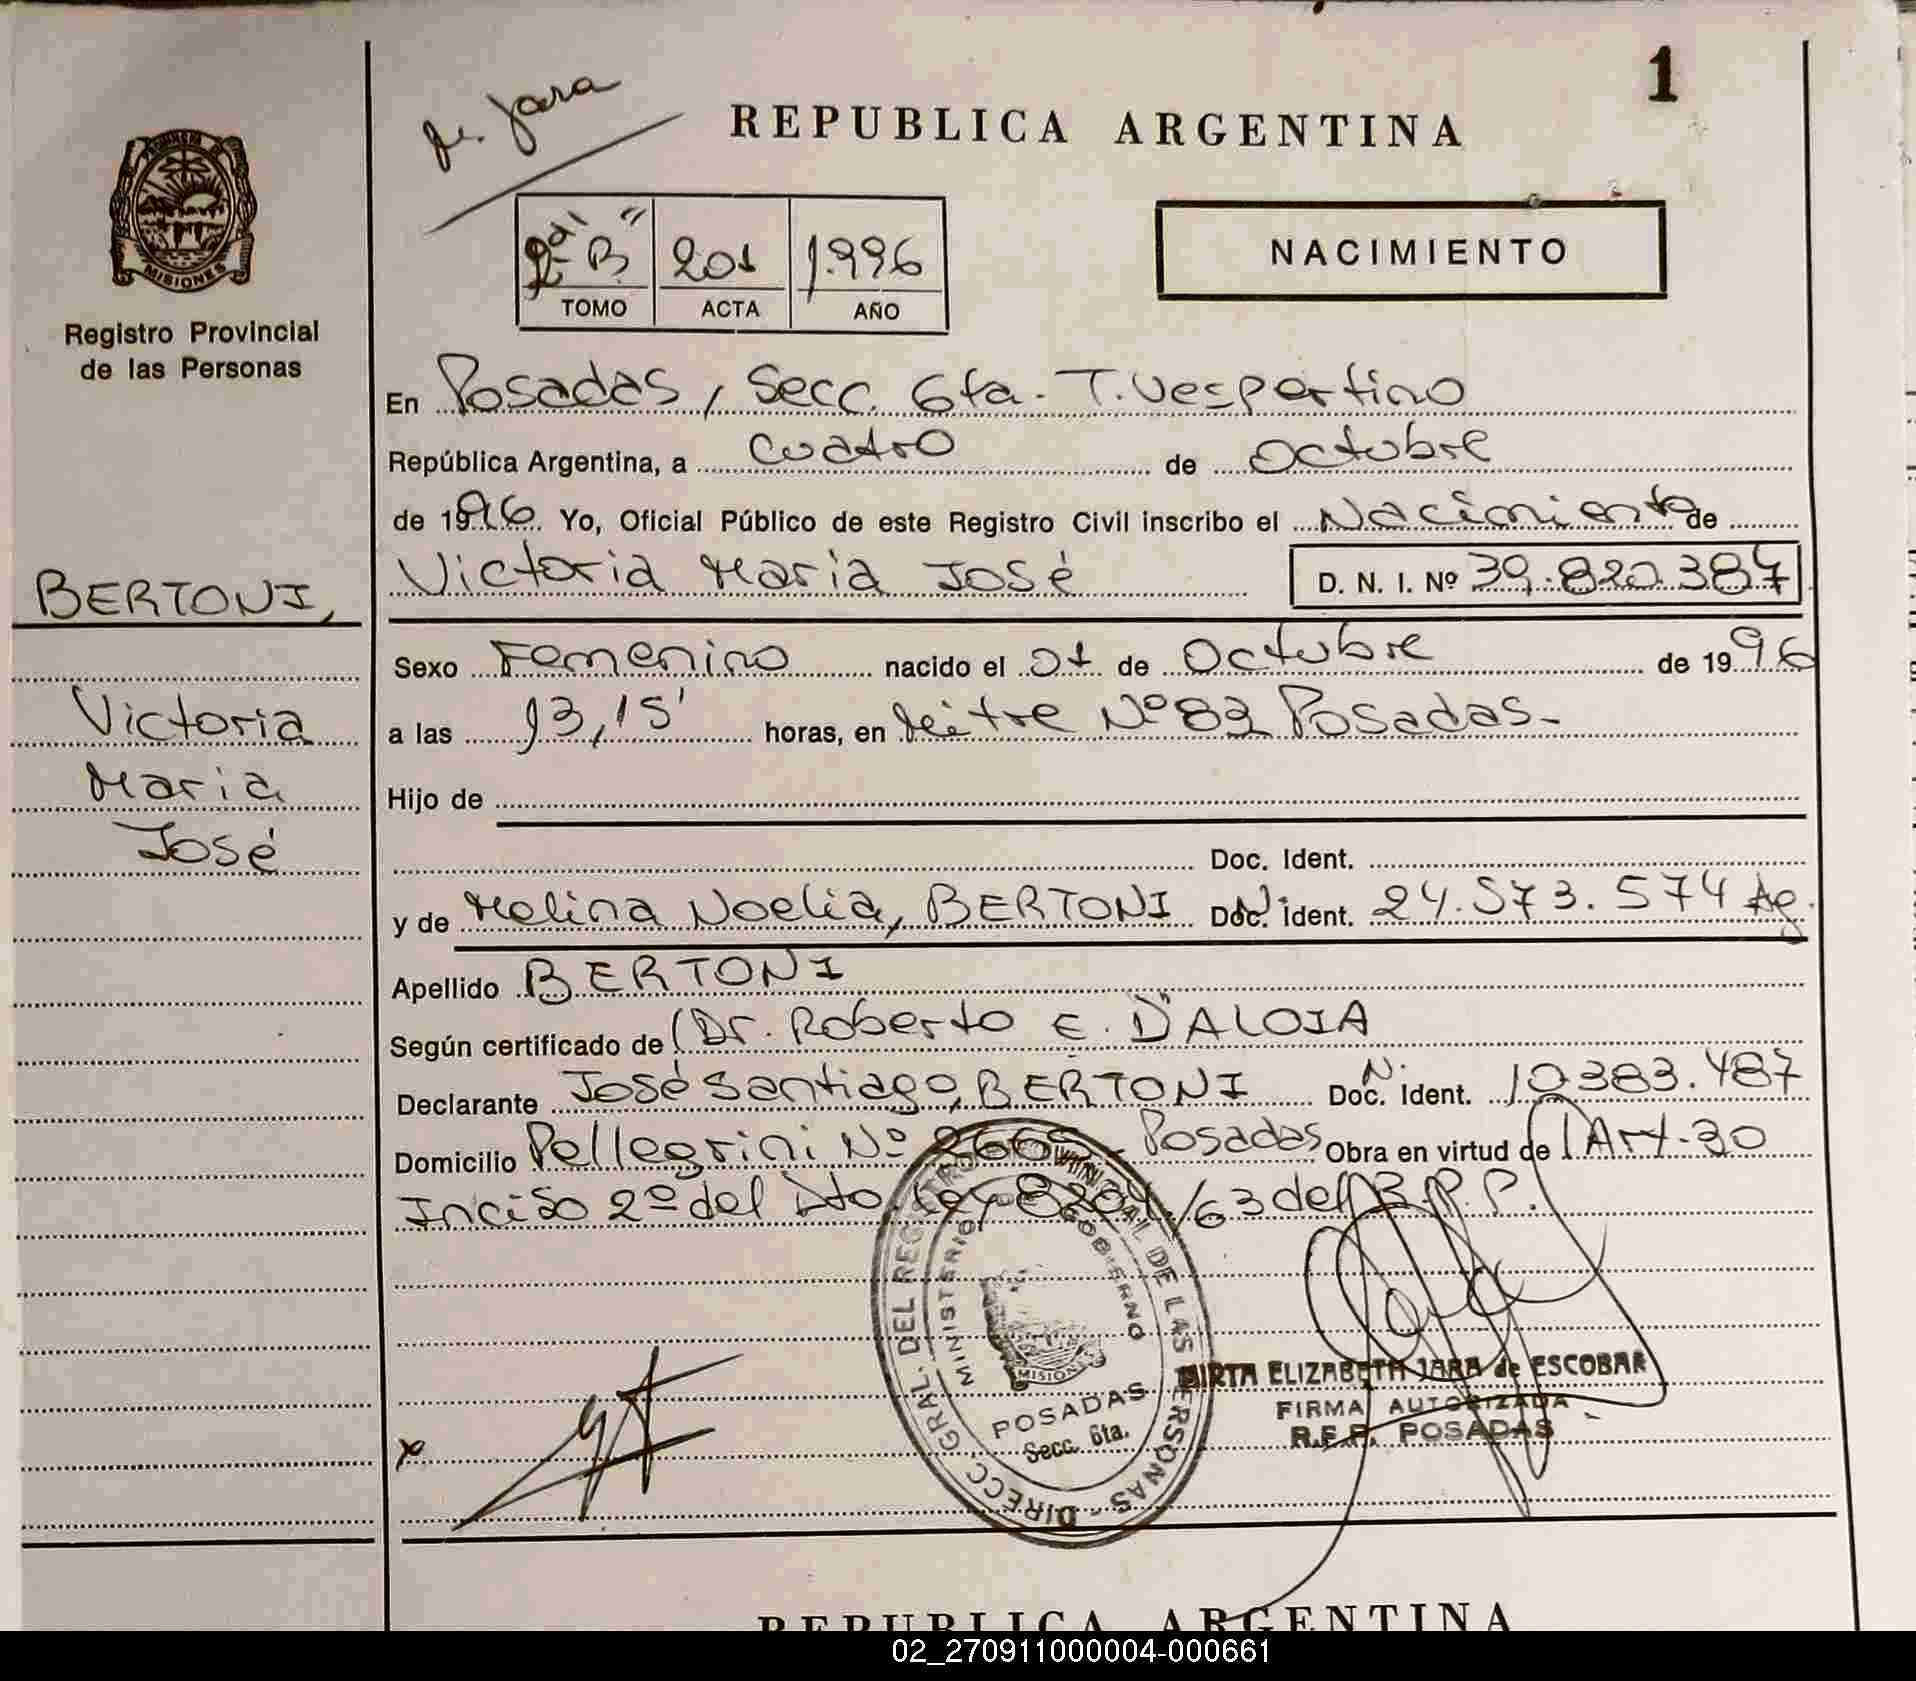 1
M. Jara
REPUBLICA ARGENTINA
PROVINCIA DE
MISIONES
Registro Provincial
de las Personas
2º "B" 201 1.996
TOMO ACTA AÑO
NACIMIENTO
En Posadas, Secc. 6ta. T. Vespertino
República Argentina, a cuatro de Octubre
de 1996 Yo, Oficial Público de este Registro Civil inscribo el Nacimiento de
Victoria Maria José D. N. I. Nº 39.820.387
BERTONI,
Victoria
Maria
José
Sexo Femenino nacido el 01 de Octubre de 1996
a las 13,15' horas, en Mitre Nº 83 Posadas-
Hijo de
Doc. Ident.
y de Melina Noelia, BERTONI Doc. N. Ident. 24.573.574 Ag.
Apellido BERTONI
Según certificado de (Dr. Roberto E. D'ALOIA
Declarante José Santiago, BERTONI Doc. N. Ident. 10.383.487
Domicilio Pellegrini Nº 2665 - Posadas Obra en virtud del Art. 30
Inciso 2º del Dto. Ley 8204/63 del R.P.P.
DIRECC. GRAL. DEL REGISTRO PROVINCIAL DE LAS PERSONAS
MINISTERIO DE GOBIERNO
MISIONES
POSADAS
Secc. 6ta.
MIRTA ELIZABETH JARA de ESCOBAR
FIRMA AUTORIZADA
R.P.P. POSADAS
x
REPUBLICA ARGENTINA
02_270911000004-000661